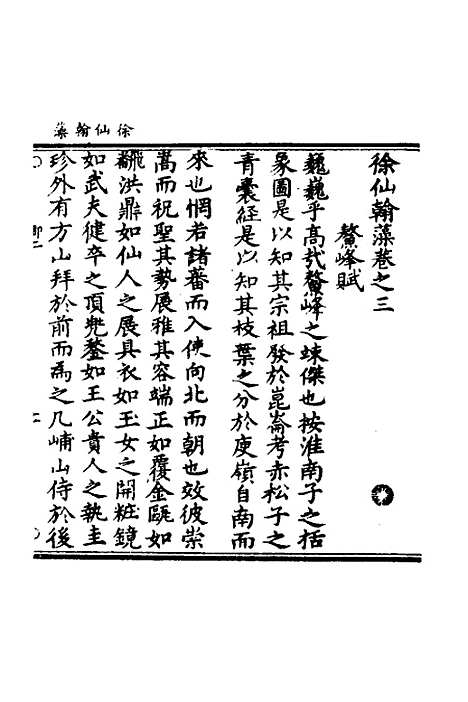 徐仙翰藻
徐仙翰藻卷之三
鰲峰賦
巍巍乎高哉鰲峰之竦傑也按淮南子之括
象圖是以知其宗祖發於崑崙考赤松子之
青囊經是以知其枝葉之分於庾嶺自南而
來也惘若諸蕃而入使向北而朝也效彼崇
嵩而祝聖其勢展雅其容端正如覆金甌如
翻洪鼎如仙人之展具衣如玉女之開粧鏡
如武夫健卒之頂兠鍪如王公貴人之執圭
珍外有方山拜於前而為之几峬山侍於後